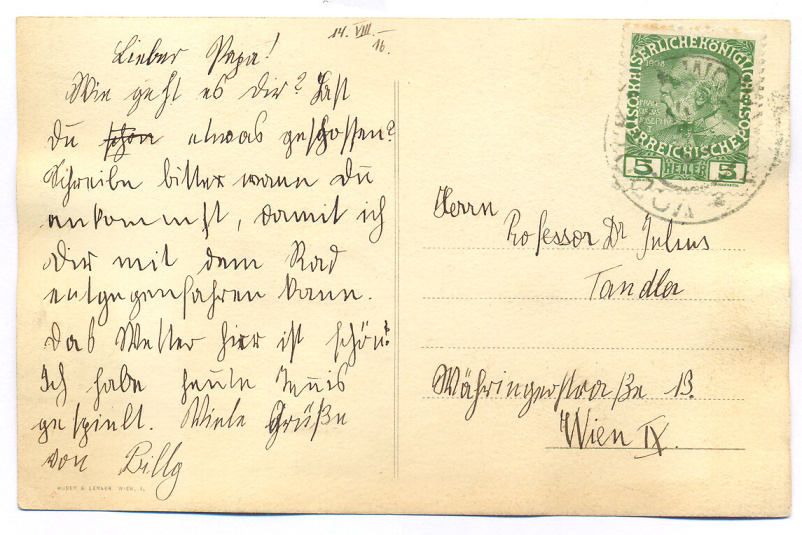 14. VIII. 16.
Lieber Papa!
Wie geht es dir? Hast
du schon etwas geschossen?
Schreibe bitte wann du
ankommst, damit ich
dir mit dem Rad
entgegenfahren kann.
Das Wetter hier ist schön.
Ich habe heute Tennis
gespielt. Viele Grüße
von Billy
KAISERLICHE KÖNIGLICHE
ÖSTERREICHISCHE
1908
5 HELLER 5
Herrn
Professor Dr Julius
Tandler
Währingerstraße 13.
Wien IX.
WIEN, I.